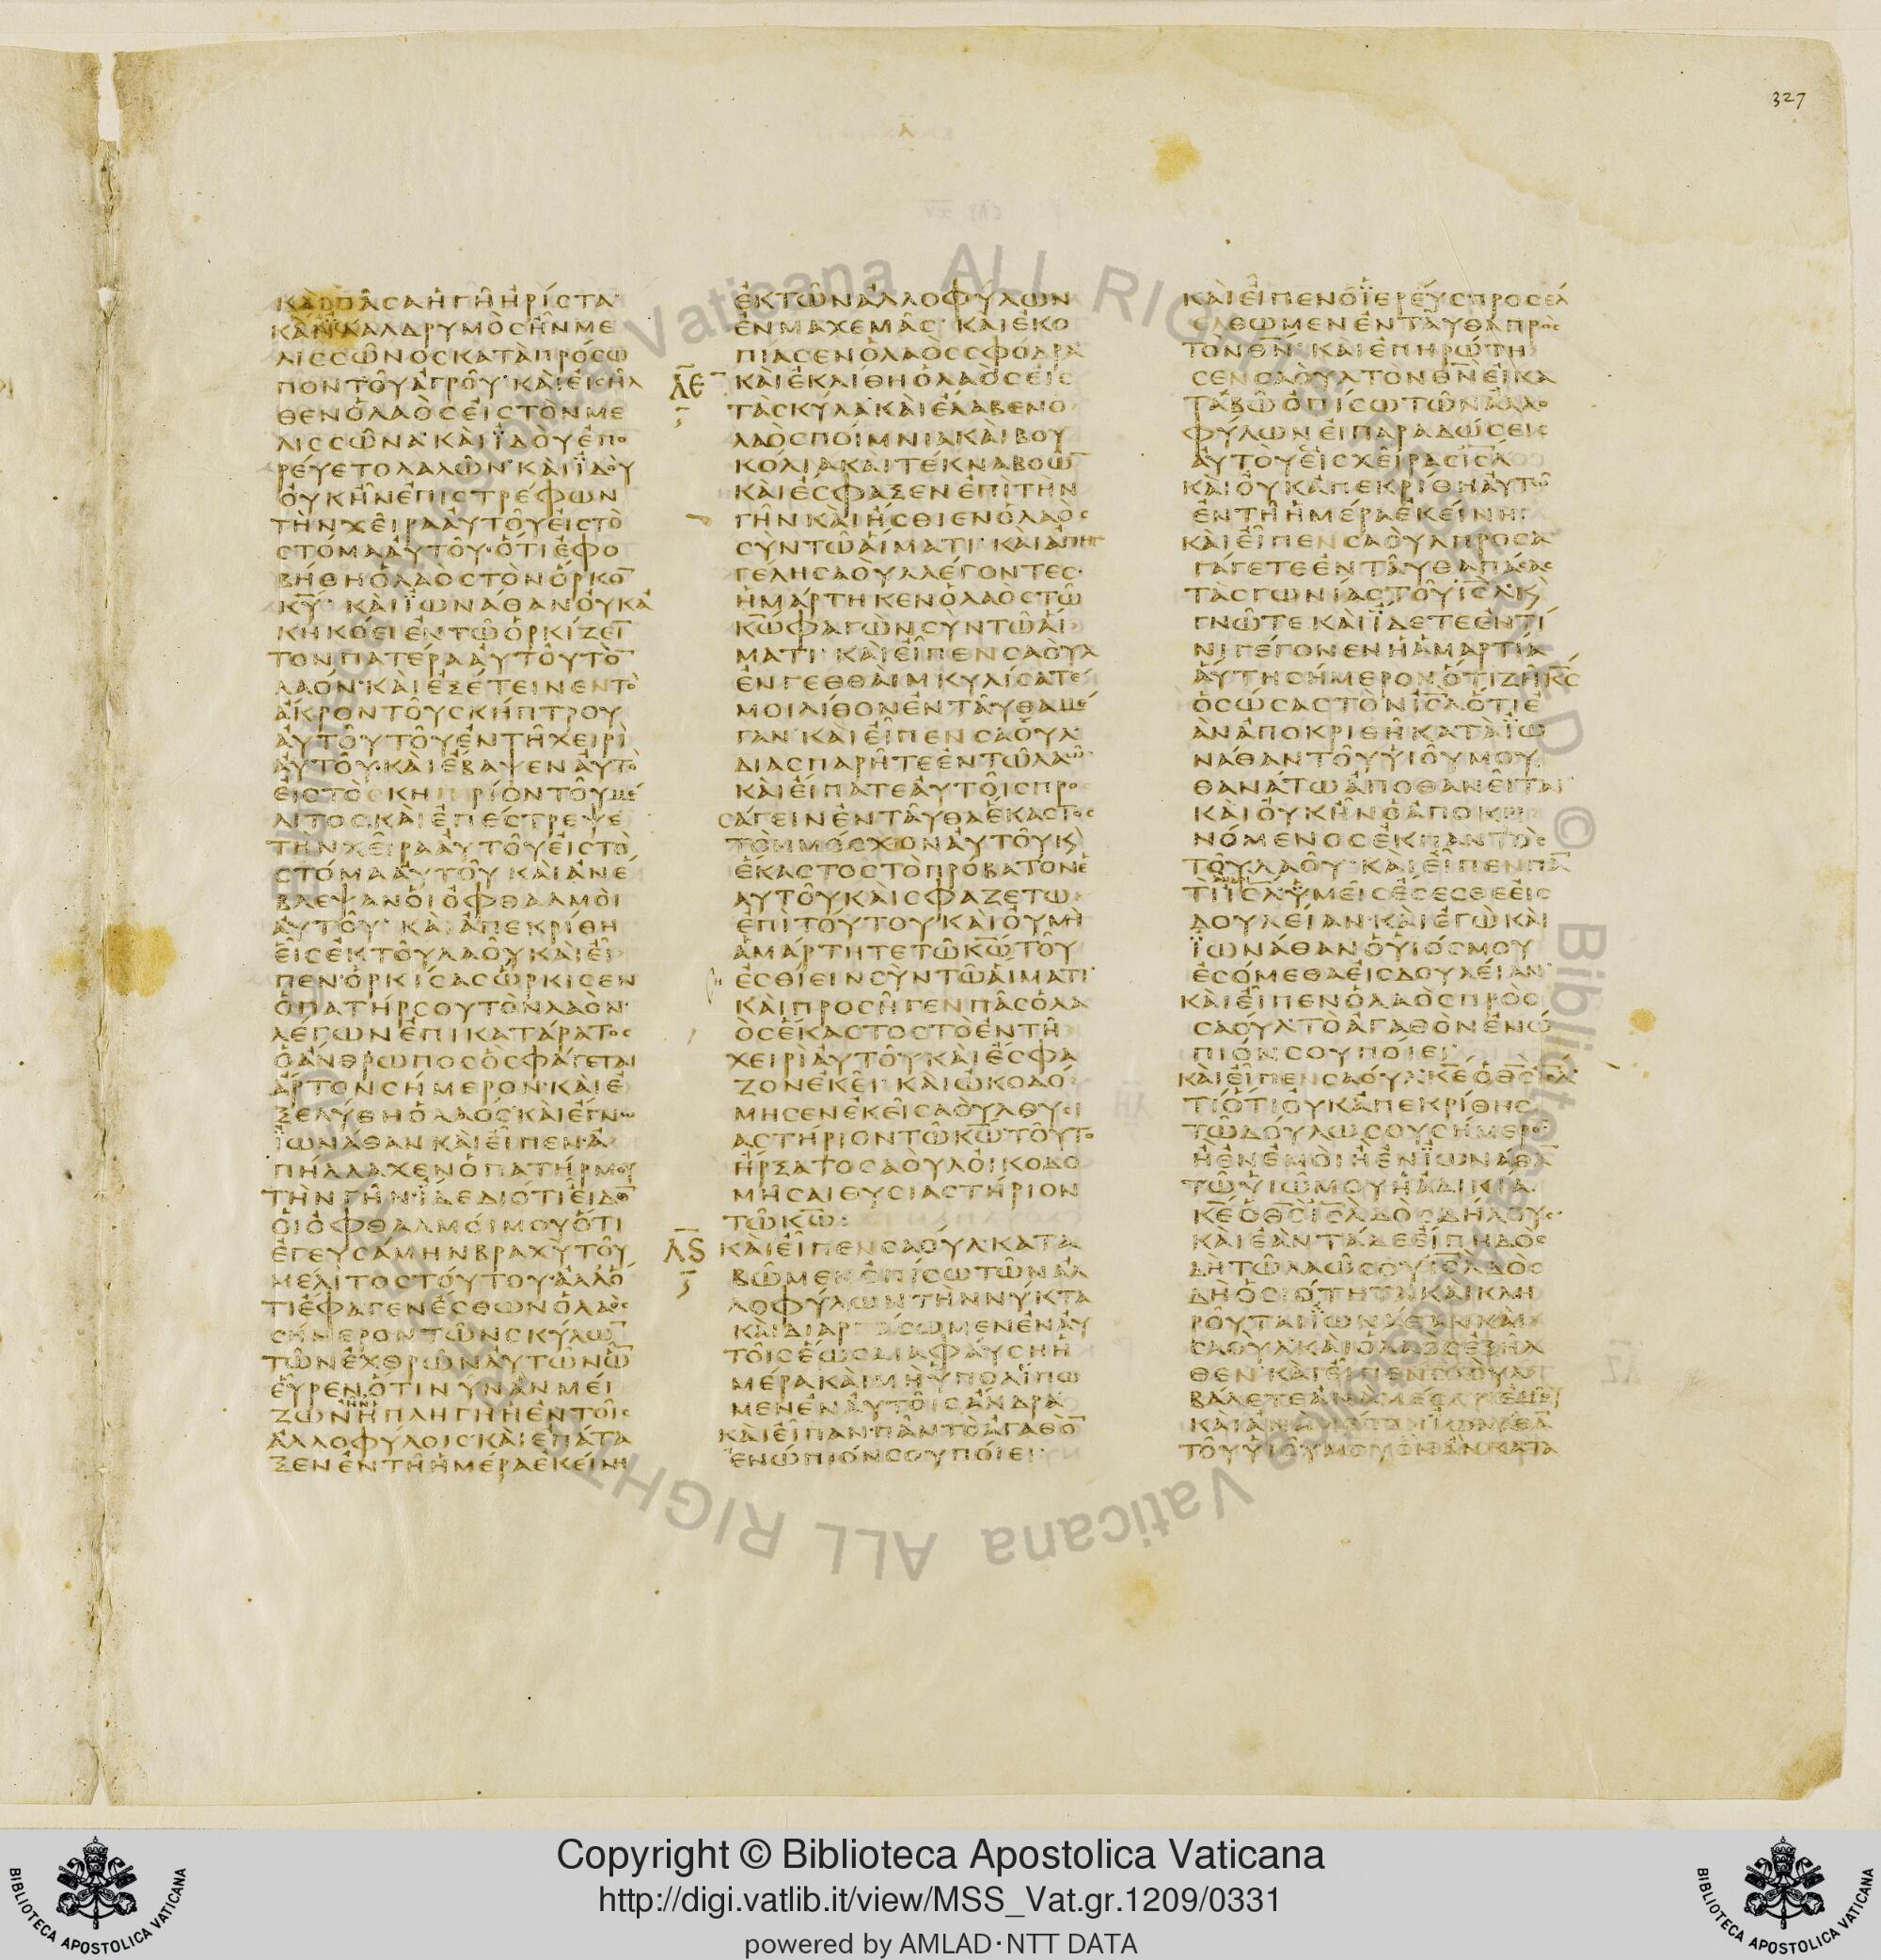 327
ΚΑΙ ΠΑΣΑ Η ΓΗ ΗΡΙΣΤΑ
ΚΑΙ ΙΑΑΛ ΔΡΥΜΟΣ ΗΝ ΜΕ
ΛΙΣΣΩΝΟΣ ΚΑΤΑ ΠΡΟΣΩ
ΠΟΝ ΤΟΥ ΑΓΡΟΥ ΚΑΙ ΕΙΣΗΛ
ΘΕΝ Ο ΛΑΟΣ ΕΙΣ ΤΟΝ ΜΕ
ΛΙΣΣΩΝΑ ΚΑΙ ΙΔΟΥ ΕΠΟ
ΡΕΥΕΤΟ ΛΑΛΩΝ ΚΑΙ ΙΔΟΥ
ΟΥΚ ΗΝ ΕΠΙΣΤΡΕΦΩΝ
ΤΗΝ ΧΕΙΡΑ ΑΥΤΟΥ ΕΙΣ ΤΟ
ΣΤΟΜΑ ΑΥΤΟΥ ΟΤΙ ΕΦΟ
ΒΗΘΗ Ο ΛΑΟΣ ΤΟΝ ΟΡΚΟ̅
Κ̅Υ̅ ΚΑΙ ΙΩΝΑΘΑΝ ΟΥΚ Α
ΚΗΚΟΕΙ ΕΝ ΤΩ ΟΡΚΙΖΕΙ̅
ΤΟΝ ΠΑΤΕΡΑ ΑΥΤΟΥ ΤΟ̅
ΛΑΟΝ ΚΑΙ ΕΞΕΤΕΙΝΕΝ ΤΟ
ΑΚΡΟΝ ΤΟΥ ΣΚΗΠΤΡΟΥ
ΑΥΤΟΥ ΤΟΥ ΕΝ ΤΗ ΧΕΙΡΙ
ΑΥΤΟΥ ΚΑΙ ΕΒΑΨΕΝ ΑΥΤΟ
ΕΙΣ ΤΟ ΚΗΡΙΟΝ ΤΟΥ ΜΕ
ΛΙΤΟΣ ΚΑΙ ΕΠΕΣΤΡΕΨΕ
ΤΗΝ ΧΕΙΡΑ ΑΥΤΟΥ ΕΙΣ ΤΟ
ΣΤΟΜΑ ΑΥΤΟΥ ΚΑΙ ΑΝΕ
ΒΛΕΨΑΝ ΟΙ ΟΦΘΑΛΜΟΙ
ΑΥΤΟΥ ΚΑΙ ΑΠΕΚΡΙΘΗ
ΕΙΣ ΕΚ ΤΟΥ ΛΑΟΥ ΚΑΙ ΕΙ
ΠΕΝ ΟΡΚΙΣΑΣ ΩΡΚΙΣΕΝ
Ο ΠΑΤΗΡ ΣΟΥ ΤΟΝ ΛΑΟΝ
ΛΕΓΩΝ ΕΠΙΚΑΤΑΡΑΤΟΣ
Ο ΑΝΘΡΩΠΟΣ ΟΣ ΦΑΓΕΤΑΙ
ΑΡΤΟΝ ΣΗΜΕΡΟΝ ΚΑΙ Ε
ΞΕΛΥΘΗ Ο ΛΑΟΣ ΚΑΙ ΕΓΝΩ
ΙΩΝΑΘΑΝ ΚΑΙ ΕΙΠΕΝ Α
ΠΗΛΛΑΧΕΝ Ο ΠΑΤΗΡ ΜΟΥ
ΤΗΝ ΓΗΝ ΙΔΕ ΔΙΟΤΙ ΕΙΔΟ̅
ΟΙ ΟΦΘΑΛΜΟΙ ΜΟΥ ΟΤΙ
ΕΓΕΥΣΑΜΗΝ ΒΡΑΧΥ ΤΟΥ
ΜΕΛΙΤΟΣ ΤΟΥΤΟΥ ΑΛΛ Ο
ΤΙ ΕΦΑΓΕΝ ΕΣΘΩΝ Ο ΛΑΟΣ
ΣΗΜΕΡΟΝ ΤΩΝ ΣΚΥΛΩ̅
ΤΩΝ ΕΧΘΡΩΝ ΑΥΤΩΝ Ω̅
ΕΥΡΕΝ ΟΤΙ ΝΥΝ ΑΝ ΜΕΙ
ΖΩΝ Η ΠΛΗΓΗ Η ΕΝ ΤΟΙΣ
ΑΛΛΟΦΥΛΟΙΣ ΚΑΙ ΕΠΑΤΑ
ΞΕΝ ΕΝ ΤΗ ΗΜΕΡΑ ΕΚΕΙΝΗ
ΕΚ ΤΩΝ ΑΛΛΟΦΥΛΩΝ
ΕΝ ΜΑΧΕΜΑΣ ΚΑΙ ΕΚΟ
ΠΙΑΣΕΝ Ο ΛΑΟΣ ΣΦΟΔΡΑ
Λ̅Ε̅ ΚΑΙ ΕΚΛΙΘΗ Ο ΛΑΟΣ ΕΙΣ
ΤΑ ΣΚΥΛΑ ΚΑΙ ΕΛΑΒΕΝ Ο
ΛΑΟΣ ΠΟΙΜΝΙΑ ΚΑΙ ΒΟΥ
ΚΟΛΙΑ ΚΑΙ ΤΕΚΝΑ ΒΟΩ̅
ΚΑΙ ΕΣΦΑΞΕΝ ΕΠΙ ΤΗΝ
ΓΗΝ ΚΑΙ ΗΣΘΙΕΝ Ο ΛΑΟΣ
ΣΥΝ ΤΩ ΑΙΜΑΤΙ ΚΑΙ ΑΠΗΓ
ΓΕΛΗ ΣΑΟΥΛ ΛΕΓΟΝΤΕΣ
ΗΜΑΡΤΗΚΕΝ Ο ΛΑΟΣ ΤΩ
Κ̅Ω̅ ΦΑΓΩΝ ΣΥΝ ΤΩ ΑΙ
ΜΑΤΙ ΚΑΙ ΕΙΠΕΝ ΣΑΟΥΛ
ΕΝ ΓΕΘΘΑΙΜ ΚΥΛΙΣΑΤΕ
ΜΟΙ ΛΙΘΟΝ ΕΝΤΑΥΘΑ ΜΕ
ΓΑΝ ΚΑΙ ΕΙΠΕΝ ΣΑΟΥΛ
ΔΙΑΣΠΑΡΗΤΕ ΕΝ ΤΩ ΛΑΩ
ΚΑΙ ΕΙΠΑΤΕ ΑΥΤΟΙΣ ΠΡΟ
ΣΑΓΕΙΝ ΕΝΤΑΥΘΑ ΕΚΑΣΤΟΣ
ΤΟΝ ΜΟΣΧΟΝ ΑΥΤΟΥ Κ̀
ΕΚΑΣΤΟΣ ΤΟ ΠΡΟΒΑΤΟΝ Ε
ΑΥΤΟΥ ΚΑΙ ΣΦΑΖΕΤΩ
ΕΠΙ ΤΟΥΤΟΥ ΚΑΙ ΟΥ ΜΗ
ΑΜΑΡΤΗΤΕ ΤΩ Κ̅Ω̅ ΤΟΥ
ΕΣΘΙΕΙΝ ΣΥΝ ΤΩ ΑΙΜΑΤΙ
ΚΑΙ ΠΡΟΣΗΓΕΝ ΠΑΣ Ο ΛΑ
ΟΣ ΕΚΑΣΤΟΣ ΤΟ ΕΝ ΤΗ
ΧΕΙΡΙ ΑΥΤΟΥ ΚΑΙ ΕΣΦΑ
ΖΟΝ ΕΚΕΙ ΚΑΙ ΩΚΟΔΟ
ΜΗΣΕΝ ΕΚΕΙ ΣΑΟΥΛ ΘΥΣΙ
ΑΣΤΗΡΙΟΝ ΤΩ Κ̅Ω̅ ΤΟΥΤΟ
ΗΡΞΑΤΟ ΣΑΟΥΛ ΟΙΚΟΔΟ
ΜΗΣΑΙ ΘΥΣΙΑΣΤΗΡΙΟΝ
ΤΩ Κ̅Ω̅
Λ̅Ϛ̅ ΚΑΙ ΕΙΠΕΝ ΣΑΟΥΛ ΚΑΤΑ
ΒΩΜΕΝ ΟΠΙΣΩ ΤΩΝ ΑΛ
ΛΟΦΥΛΩΝ ΤΗΝ ΝΥΚΤΑ
ΚΑΙ ΔΙΑΡΠΑΣΩΜΕΝ ΕΝ ΑΥ
ΤΟΙΣ ΕΩΣ ΔΙΑΦΑΥΣΗ Η
ΜΕΡΑ ΚΑΙ ΜΗ ΥΠΟΛΙΠΩ
ΜΕΝ ΕΝ ΑΥΤΟΙΣ ΑΝΔΡΑ
ΚΑΙ ΕΙΠΑΝ ΠΑΝ ΤΟ ΑΓΑΘΟ̅
ΕΝΩΠΙΟΝ ΣΟΥ ΠΟΙΕΙ
ΚΑΙ ΕΙΠΕΝ Ο ΙΕΡΕΥΣ ΠΡΟΣΕΛ
ΘΩΜΕΝ ΕΝΤΑΥΘΑ ΠΡΟΣ
ΤΟΝ Θ̅Ν̅ ΚΑΙ ΕΠΗΡΩΤΗ
ΣΕΝ ΣΑΟΥΛ ΤΟΝ Θ̅Ν̅ ΕΙ ΚΑ
ΤΑΒΩ ΟΠΙΣΩ ΤΩΝ ΑΛΛΟ
ΦΥΛΩΝ ΕΙ ΠΑΡΑΔΩΣΕΙΣ
ΑΥΤΟΥΣ ΕΙΣ ΧΕΙΡΑΣ Ι̅Σ̅Λ̅
ΚΑΙ ΟΥΚ ΑΠΕΚΡΙΘΗ ΑΥΤΩ
ΕΝ ΤΗ ΗΜΕΡΑ ΕΚΕΙΝΗ
ΚΑΙ ΕΙΠΕΝ ΣΑΟΥΛ ΠΡΟΣΑ
ΓΑΓΕΤΕ ΕΝΤΑΥΘΑ ΠΑΣΑΣ
ΤΑΣ ΓΩΝΙΑΣ ΤΟΥ Ι̅Σ̅Λ̅ Κ̀
ΓΝΩΤΕ ΚΑΙ ΙΔΕΤΕ ΕΝ ΤΙ
ΝΙ ΓΕΓΟΝΕΝ Η ΑΜΑΡΤΙΑ
ΑΥΤΗ ΣΗΜΕΡΟΝ ΟΤΙ ΖΗ Κ̅Σ̅
Ο ΣΩΣΑΣ ΤΟΝ Ι̅Σ̅Λ̅ ΟΤΙ Ε
ΑΝ ΑΠΟΚΡΙΘΗ ΚΑΤΑ ΙΩ
ΝΑΘΑΝ ΤΟΥ ΥΙΟΥ ΜΟΥ
ΘΑΝΑΤΩ ΑΠΟΘΑΝΕΙΤΑΙ
ΚΑΙ ΟΥΚ ΗΝ Ο ΑΠΟΚΡΙ
ΝΟΜΕΝΟΣ ΕΚ ΠΑΝΤΟΣ
ΤΟΥ ΛΑΟΥ ΚΑΙ ΕΙΠΕΝ ΠΑ̅
ΤΙ Ι̅Σ̅Λ̅ ΥΜΕΙΣ ΕΣΕΣΘΕ ΕΙΣ
ΔΟΥΛΕΙΑΝ ΚΑΙ ΕΓΩ ΚΑΙ
ΙΩΝΑΘΑΝ Ο ΥΙΟΣ ΜΟΥ
ΕΣΟΜΕΘΑ ΕΙΣ ΔΟΥΛΕΙΑΝ
ΚΑΙ ΕΙΠΕΝ Ο ΛΑΟΣ ΠΡΟΣ
ΣΑΟΥΛ ΤΟ ΑΓΑΘΟΝ ΕΝΩ
ΠΙΟΝ ΣΟΥ ΠΟΙΕΙ
ΚΑΙ ΕΙΠΕΝ ΣΑΟΥΛ Κ̅Ε̅ Ο Θ̅Σ̅ Ι̅Σ̅Λ̅
ΤΙ ΟΤΙ ΟΥΚ ΑΠΕΚΡΙΘΗΣ
ΤΩ ΔΟΥΛΩ ΣΟΥ ΣΗΜΕΡΟ̅
Η ΕΝ ΕΜΟΙ Η ΕΝ ΙΩΝΑΘΑ̅
ΤΩ ΥΙΩ ΜΟΥ Η ΑΔΙΚΙΑ
Κ̅Ε̅ Ο Θ̅Σ̅ Ι̅Σ̅Λ̅ ΔΟΣ ΔΗΛΟΥΣ
ΚΑΙ ΕΑΝ ΤΑΔΕ ΕΙΠΗ ΔΟΣ
ΔΗ ΤΩ ΛΑΩ ΣΟΥ Ι̅Σ̅Λ̅ ΔΟΣ
ΔΗ ΟΣΙΟΤΗΤΑ ΚΑΙ ΚΛΗ
ΡΟΥΤΑΙ ΙΩΝΑΘΑΝ ΚΑΙ
ΣΑΟΥΛ ΚΑΙ Ο ΛΑΟΣ ΕΞΗΛ
ΘΕΝ ΚΑΙ ΕΙΠΕΝ ΣΑΟΥΛ
ΒΑΛΕΤΕ ΑΝΑ ΜΕΣΟΝ ΕΜΟΥ
ΚΑΙ ΑΝΑ ΜΕΣΟΝ ΙΩΝΑΘΑ̅
ΤΟΥ ΥΙΟΥ ΜΟΥ ΟΝ ΑΝ ΚΑΤΑ
Copyright © Biblioteca Apostolica Vaticana
http://digi.vatlib.it/view/MSS_Vat.gr.1209/0331
powered by AMLAD·NTT DATA
BIBLIOTECA APOSTOLICA VATICANA
BIBLIOTECA APOSTOLICA VATICANA